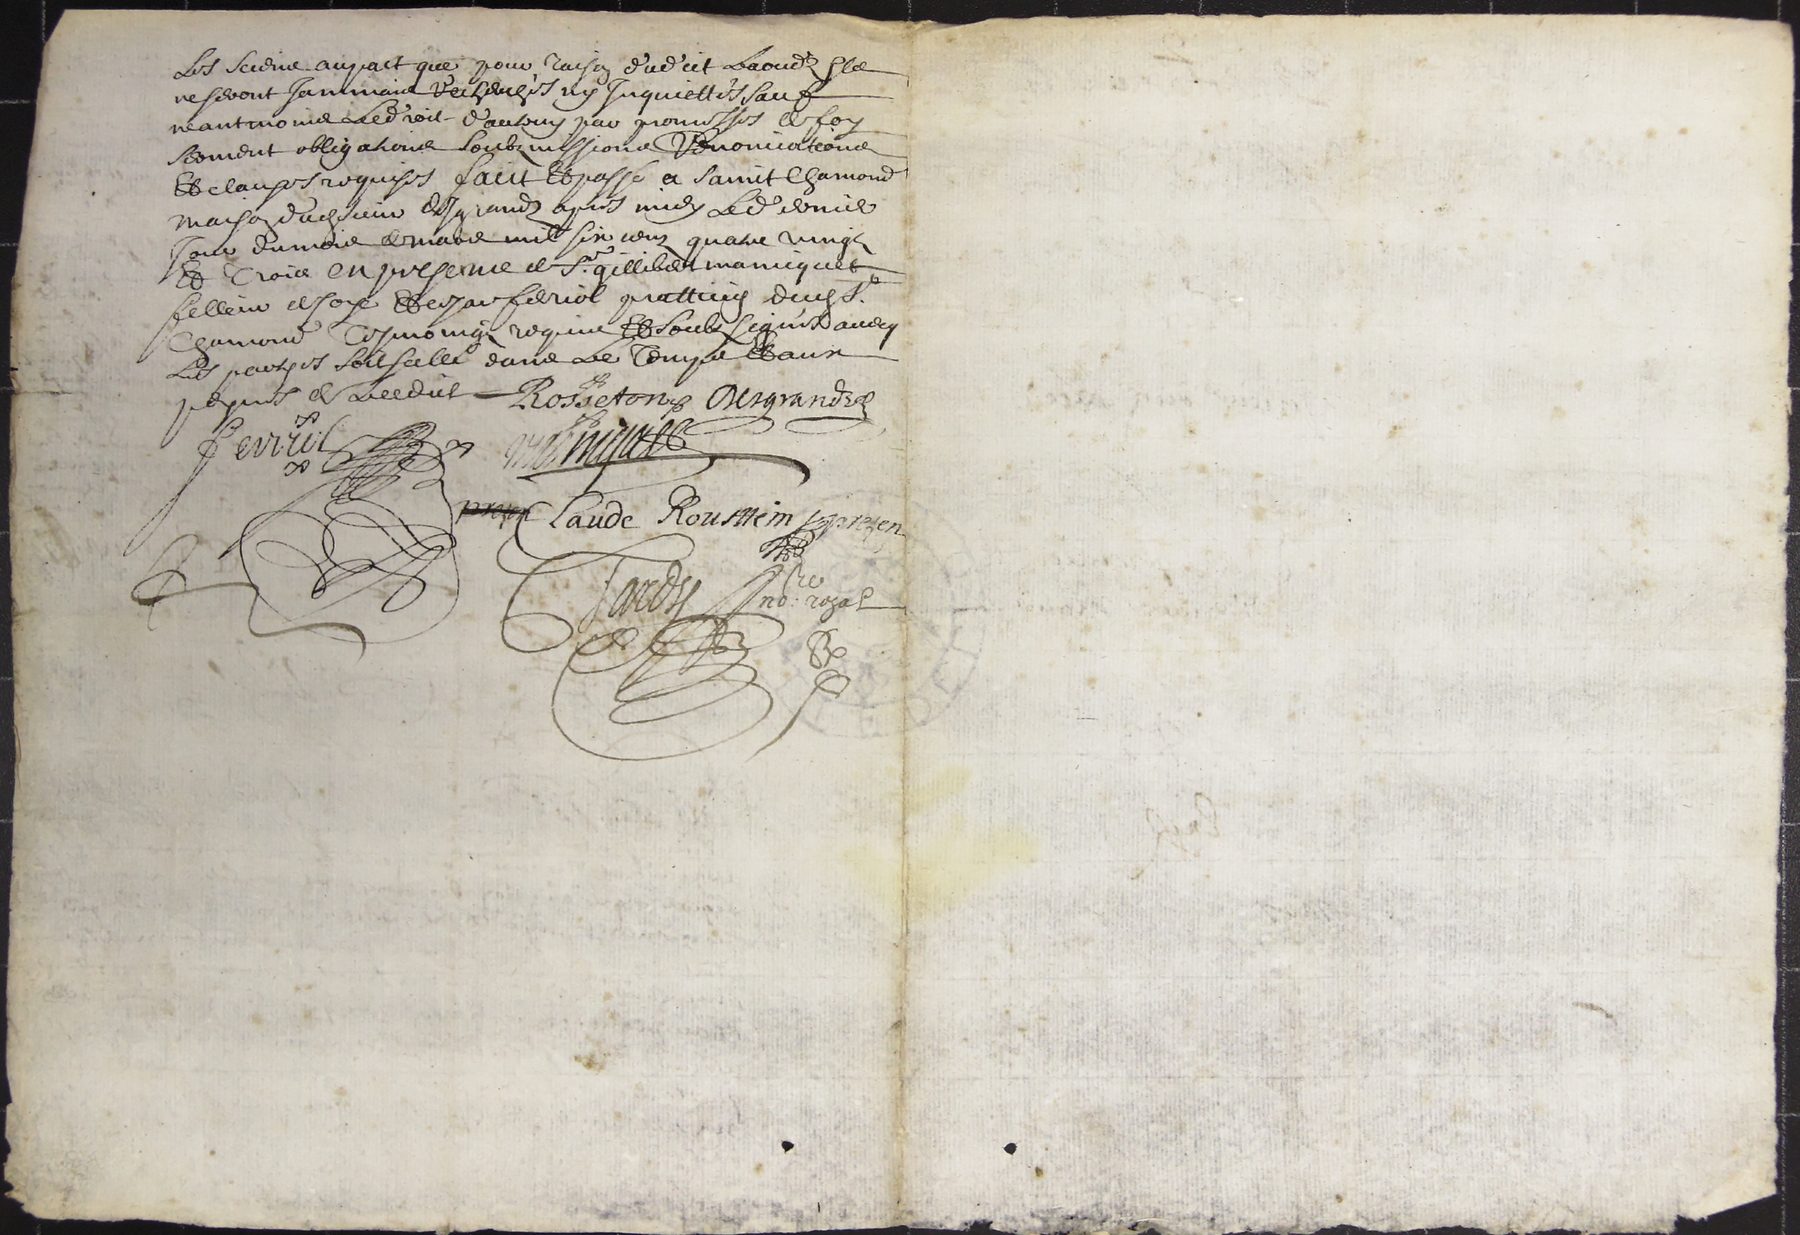 Les sciens aupact que pour raison dud'it Laoudz Ilz
ne seront Jammais Recherchés ny Inquiettés sauf
neantmoins Le droit d'autruy par promesses de foy
serment obligations soubzmissions Renonciations
Et clauses requises faict Et passé a Sainct Chamond
maison dud sieur Desgrandz apres midy Le d'ernier
Jour du mois de mars mil six cens quatre vingtz
Et Trois En presence de Sr. gillibert maniquet
felleur de soye Et Cezar ferriol pratticien dud St.
Chamond Tesmoingz requis Et Soubz signés avecq
Les parties
peynes de L'eedict Rosseton Desgrandz
ferriol maniquet
Claude Roussein presen
Tardy nore. royal